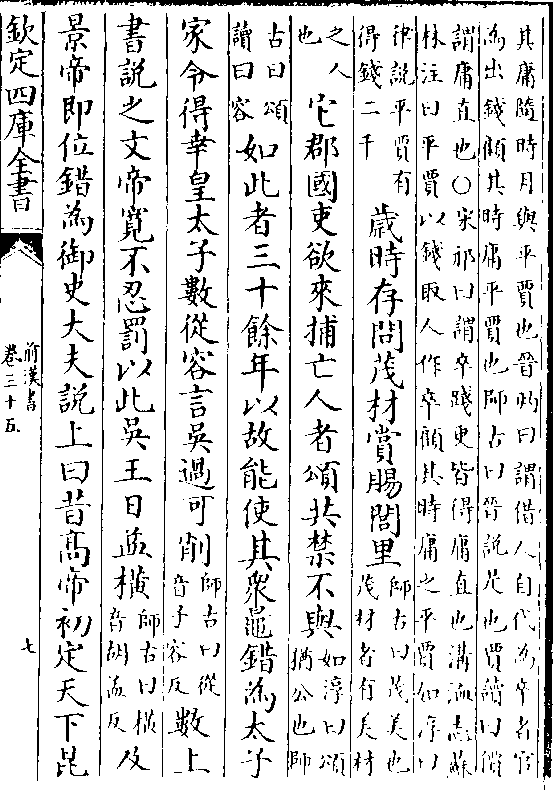 其庸隨時月與平賈也晉灼曰謂借人自代為卒者官
為出錢顧其時庸平賈也師古曰晉說是也賈讀曰價
謂庸直也○宋祁曰謂卒踐更皆得庸直也溝洫志蘇
林注曰平賈以錢取人作卒顧其時庸之平賈如淳曰
律說平賈有
得錢二千
歲時存問茂材賞賜閭里
師古曰茂美也
茂材者有美材
之人
也
它郡國吏欲來捕亡人者頌共禁不與
如淳曰頌
猶公也師
古曰頌
讀曰容
如此者三十餘年以故能使其衆鼂錯為太子
家令得幸皇太子數從容言吳過可削
師古曰從
音子容反
數上
書說之文帝寛不忍罰以此吳王日益橫
師古曰橫
音胡孟反
及
景帝即位錯為御史大夫說上曰昔髙帝初定天下昆
欽定四庫全書
前漢書
卷三十五
七